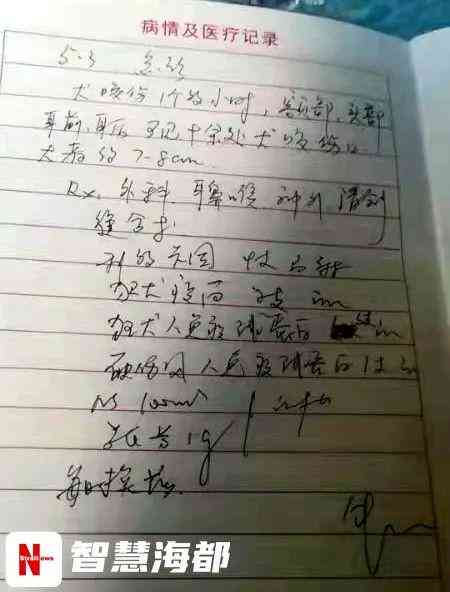 病情及医疗记录
5.3 急诊
犬咬伤1个多小时,额部、头部
耳前、耳后可见十余处犬咬伤口
大者约7-8cm
Rx. 外科 耳鼻喉 神外 清创
缝合术
狂犬疫苗 im
狂犬人免疫球蛋白 im
破伤风人免疫球蛋白 im
NS 100ml
1g
每日换药
N
StraitNews
智慧海都